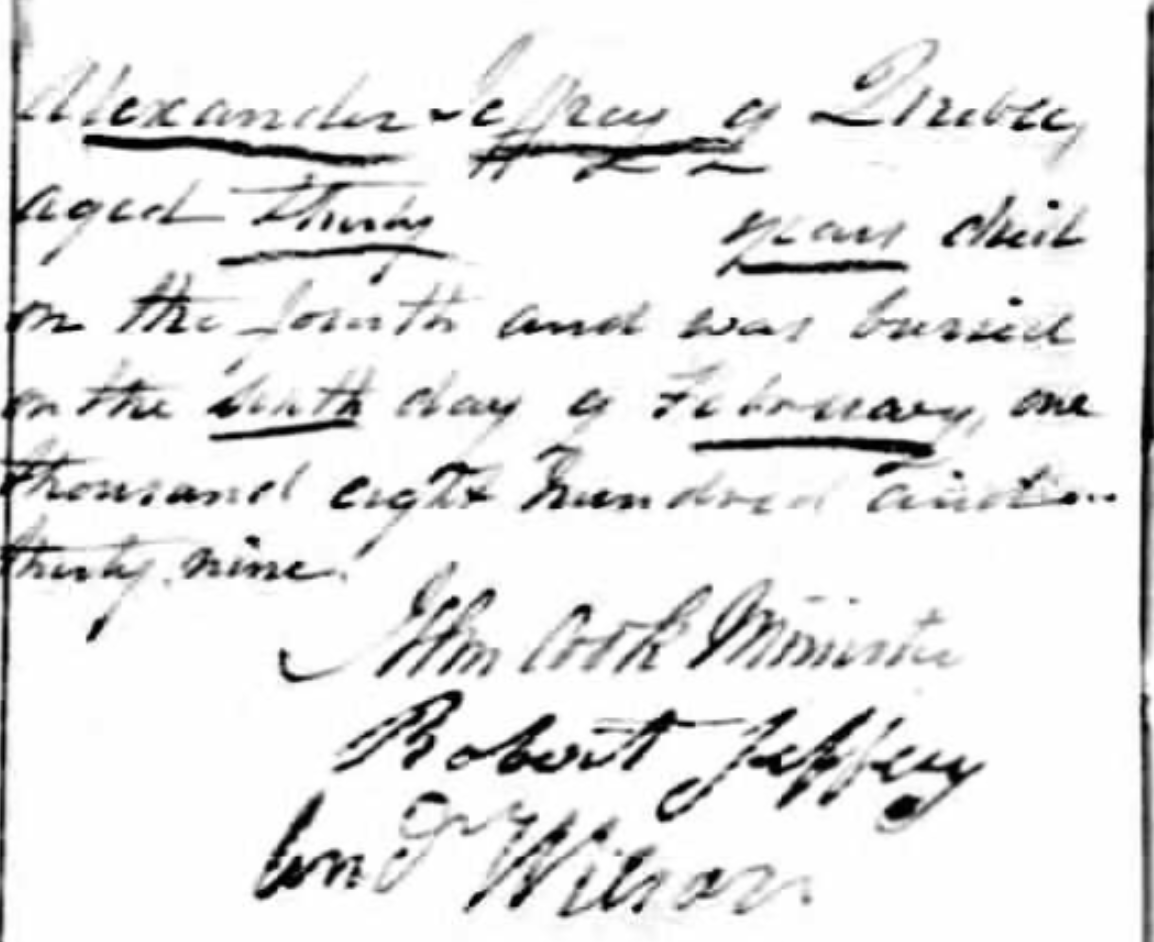 Alexander Jeffrey of Quebec,
aged thirty years died
on the fourth and was buried
on the sixth day of February, one
thousand eight hundred and
thirty nine.
John Cook Minister
Robert Jeffery
And Wilson.